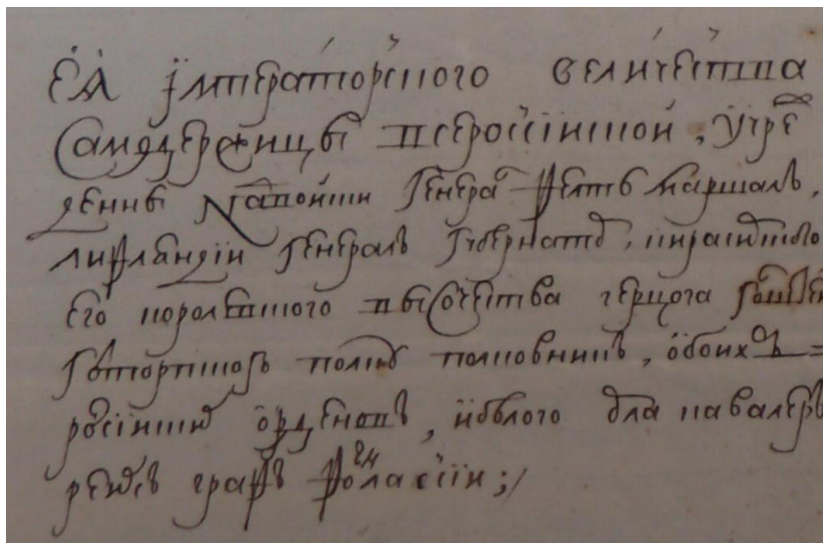 ЕЯ імператорского величества
Самодержицы всеросіиской, учре
жденны надвойски генерал фелтъ маршалъ,
лифляндіи генералъ губернатор, кирасирского
его королевского высочества герцога голштеи
готорпского полку полковникъ, обоихъ =
росіиских орденовъ, ибѣлого орла кавалеръ
рейхсъ графъ фонласіи;